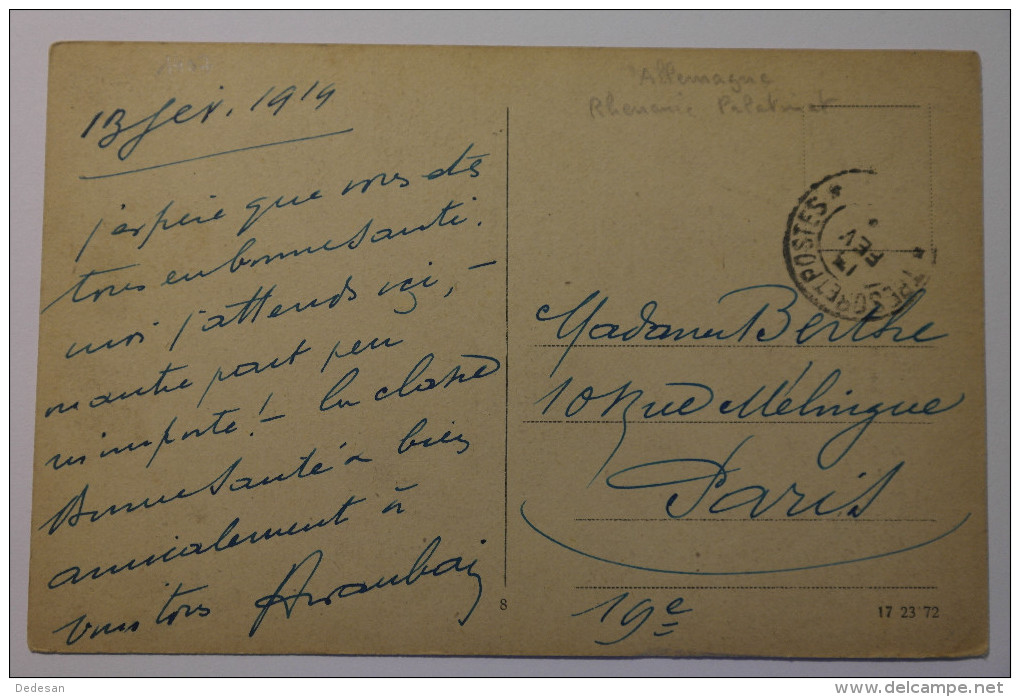 13 fev. 1919
j'espère que vous etes
tous en bonne santé.
moi j'attends ici, –
ou autre part peu
m'importe! – la classe
Bonne Santé à
amicalement à
vous tous
Allemagne
Rhenanie Palatinat
TRESOR ET POSTES
FEV
Madame Berthe
10 Rue Mélingue
Paris
19e
8
17 23 72
Dedesan
www.delcampe.net